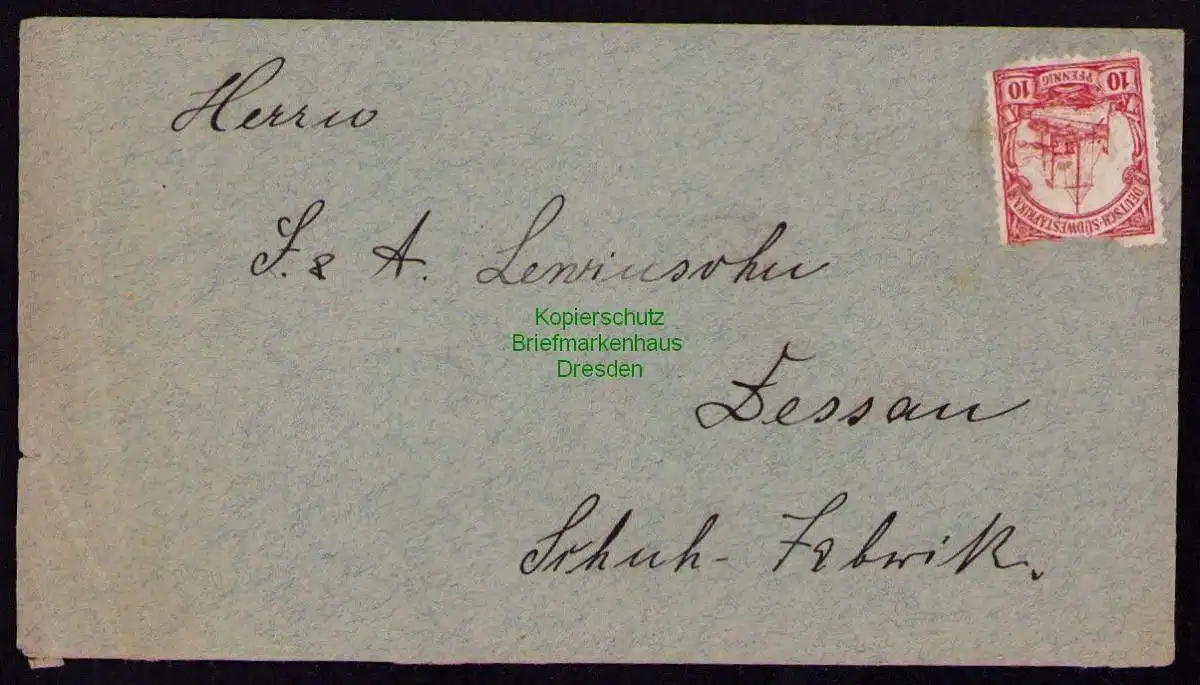 Herrn
J. & A. Lewinsohn
Dessau
Schuh-Fabrik.
10 PFENNIG 10
DEUTSCH-SÜDWESTAFRIKA
Kopierschutz
Briefmarkenhaus
Dresden